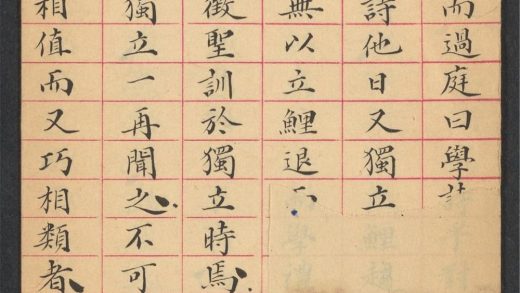 而過庭曰學
詩他日又獨立
無以立鯉退
徵聖訓於獨立時焉
獨立一再聞之不可
相值而又巧相類者